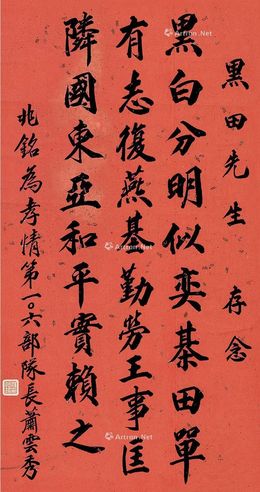 黑田先生　存念
黑白分明似奕棊田單
有志復燕基勤勞王事匡
隣國東亞和平實賴之
兆銘為孝情第一〇六部隊長蕭雲秀
Artron.Net
Artron.Net
Artron.Net